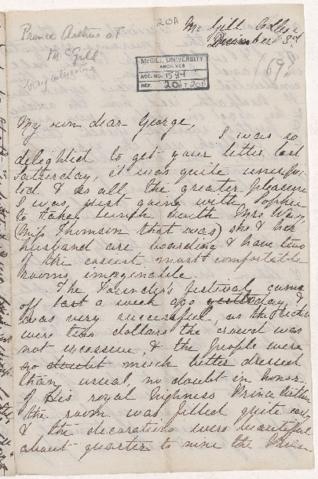 Prince Arthur at
McGill
Very interesting
20A
McGill College
December 3rd
(69)
McGILL UNIVERSITY
ARCHIVES
ACC. NO. 1594
REF.
My own dear George,
I was so
delighted to get your letter last
Saturday, it was quite unexpec-
ted & so all the greater pleasure
I was just going with Sophy
to take lunch with Mrs Way,
(Miss Thomson that was) she & her
husband are boarding & have two
of the cosiest most comfortable
rooms imaginable.
The Founder's festival came
off last a week ago yesterday, &
was very successful, as the tickets
were two dollars the crowd was
not excessive, & the people were
no doubt much better dressed
than usual, no doubt in honor
of His royal Highness Prince Arthur
the room was filled quite early
& the decorations were beautiful
about quarter to nine the Prince